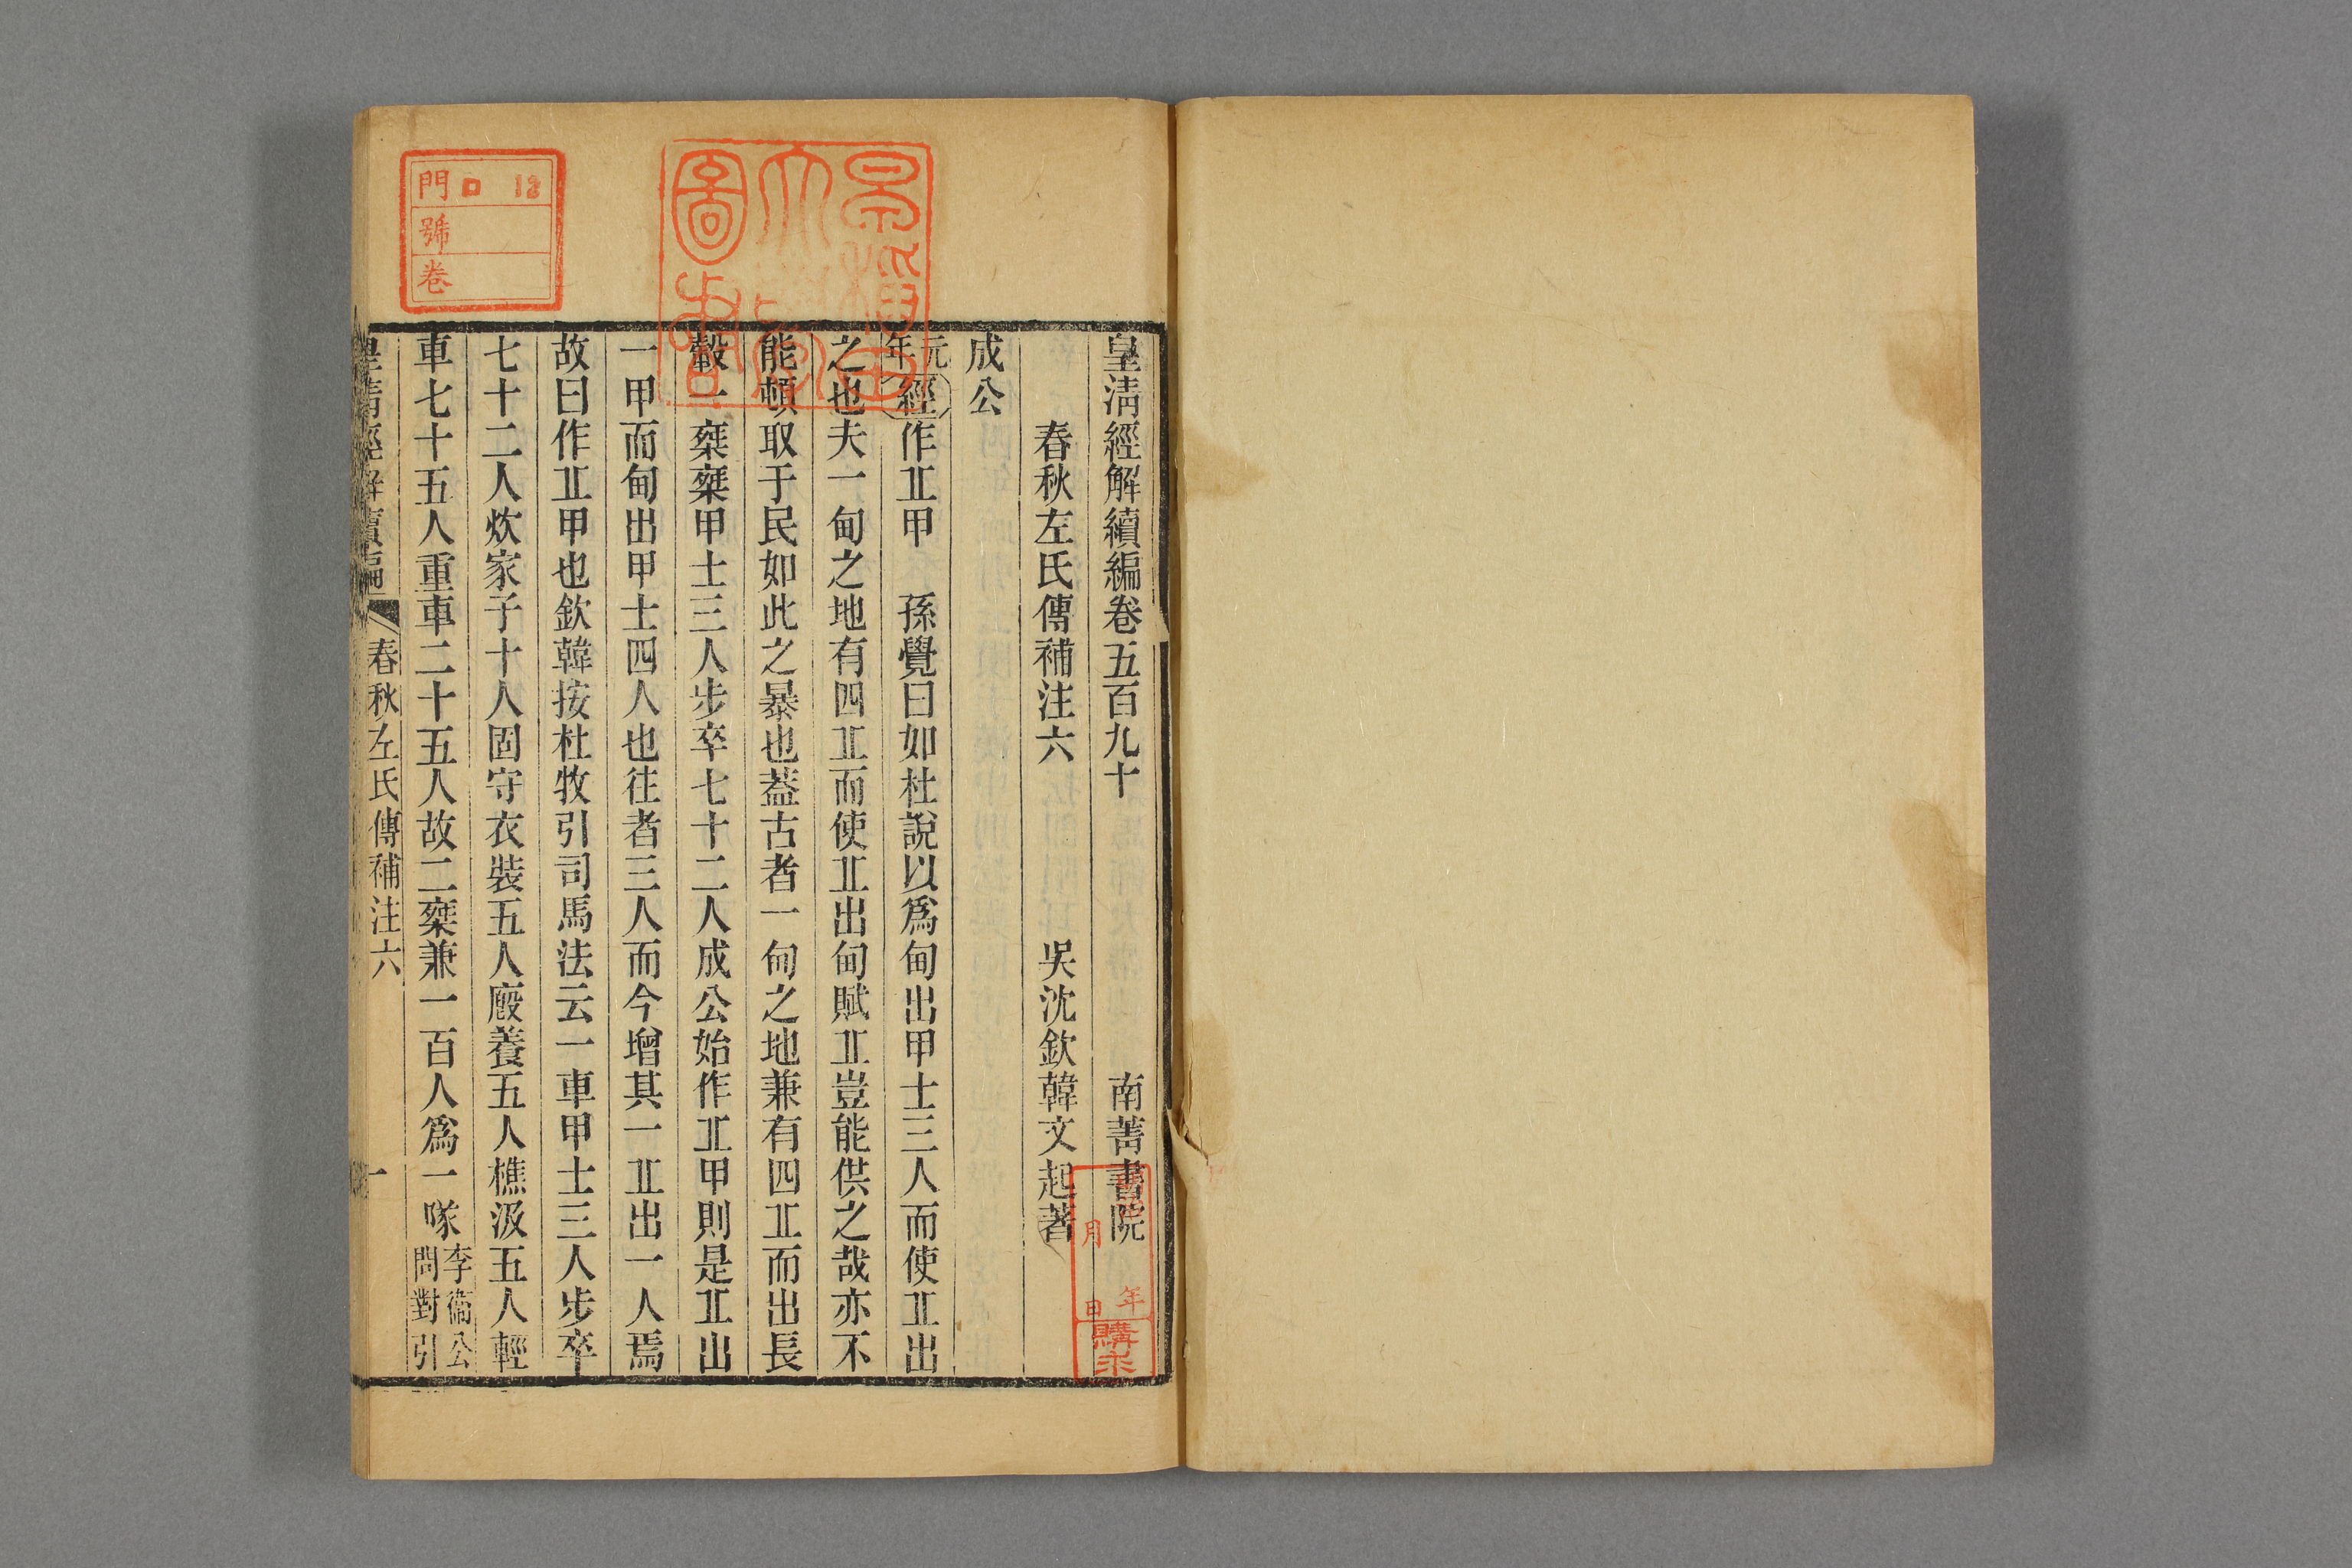 皇淸經解續編卷五百九十
南菁書院
春秋左氏傳補注六
吳沈欽韓文起著
成公
元年 經 作丠甲 孫覺曰如杜說以爲甸出甲士三人而使丠出
之也夫一甸之地有四丠而使丠出甸賦丠豈能供之哉亦不
能頓取于民如此之暴也蓋古者一甸之地兼有四丠而出長
轂一椉椉甲士三人步卒七十二人成公始作丠甲則是丠出
一甲而甸出甲士四人也往者三人而今增其一丠出一人焉
故曰作丠甲也欽韓按杜牧引司馬法云一車甲士三人步卒
七十二人炊家子十人固守衣裝五人廄養五人樵汲五人輕
車七十五人重車二十五人故二椉兼一百人爲一隊李衞公問對引
皇淸經解續編 春秋左氏傳補注六 一
門 口 12
號
卷
圖書
年
月
日
購求